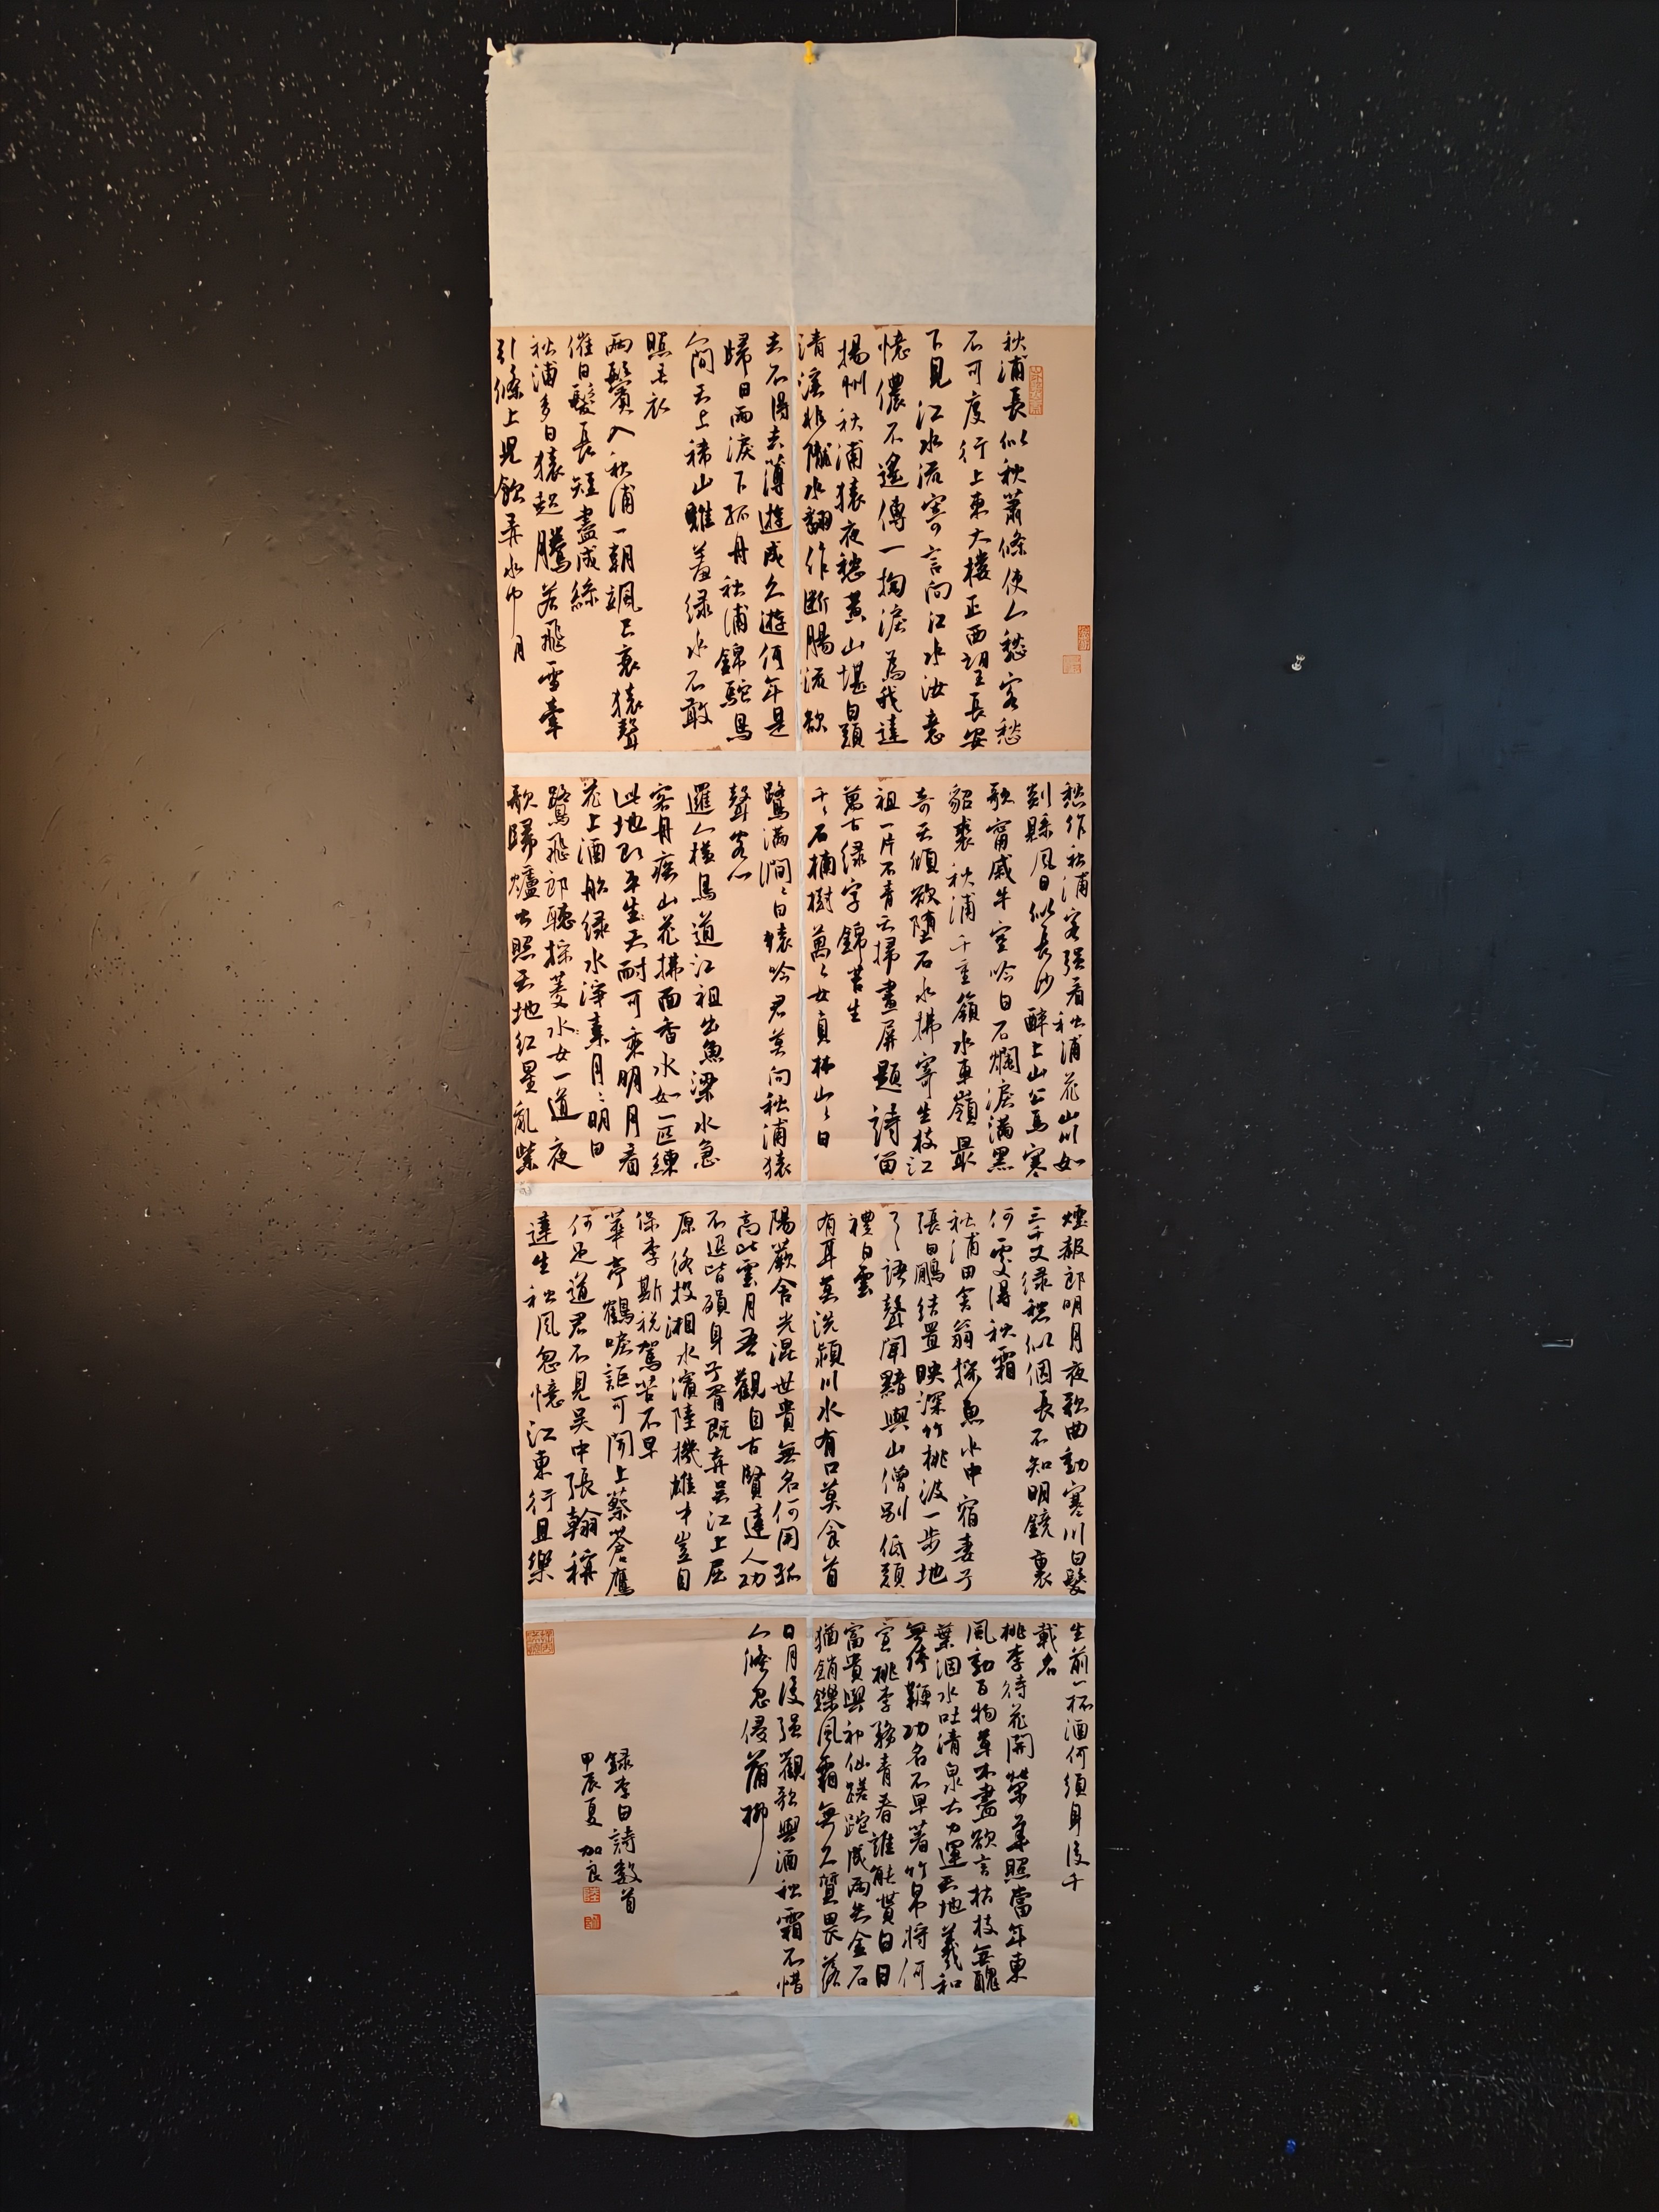 秋浦長似秋蕭條使人愁客愁
不可度行上東大樓正西望長安
下見江水流寄言向江水汝意
憶儂不遙傳一掬淚為我達
揚州秋浦猿夜愁黃山堪白頭
清溪非隴水翻作斷腸流欲
去不得去薄遊成久遊何年是
歸日雨淚下孤舟秋浦錦駝鳥
人間天上稀山雞羞綠水不敢
照毛衣
兩鬢入秋浦一朝颯已衰猿聲
催白髮長短盡成絲
秋浦多白猿超騰若飛雪牽
引條上兒飲弄水中月
愁作秋浦客強看秋浦花山川如
剡縣風日似長沙醉上山公馬寒
歌甯戚牛空吟白石爛淚滿黑
貂裘秋浦千重嶺水車嶺最
奇天傾欲墮石水拂寄生枝江
祖一片石青天掃畫屏題詩留
萬古綠字錦苔生
千〻石楠樹萬〻女貞林山〻白
鷺滿澗〻白猿吟君莫向秋浦猿
聲客心
邏人橫鳥道江祖出魚梁水急
客舟疾山花拂面香水如一匹練
此地即平生天耐可乘明月看
花上酒船綠水淨素月〻明白
鷺飛郎聽採菱水女一道夜
歌歸爐火照天地紅星亂紫
煙赧郎明月夜歌曲動寒川白髮
三千丈綠愁似個長不知明鏡裏
何處得秋霜
秋浦田舍翁採魚水中宿妻子
張白鷴結罝映深竹桃波一步地
了了語聲聞黯與山僧別低頭
禮白雲
有耳莫洗潁川水有口莫食首
陽蕨含光混世貴無名何用孤
高比雲月吾觀自古賢達人功
不退皆殞身子胥既棄吳江上屈
原終投湘水濱陸機雄才豈自
保李斯稅駕苦不早
華亭鶴唳詎可聞上蔡蒼鷹
何足道君不見吳中張翰稱
達生秋風忽憶江東行且樂
生前一杯酒何須身後千
載名
桃李待花開榮華照當年東
風動百物草木盡欲言枯枝無醜
葉涸水吐清泉大力運天地羲和
無停鞭功名不早著竹帛將何
宣桃李務青春誰能貰白日
富貴與神仙蹉跎成兩失金石
猶銷鑠風霜無久質畏落
日月後強觀歌與酒秋霜不惜
人倏忽侵蒲柳
錄李白詩數首
甲辰夏 加良